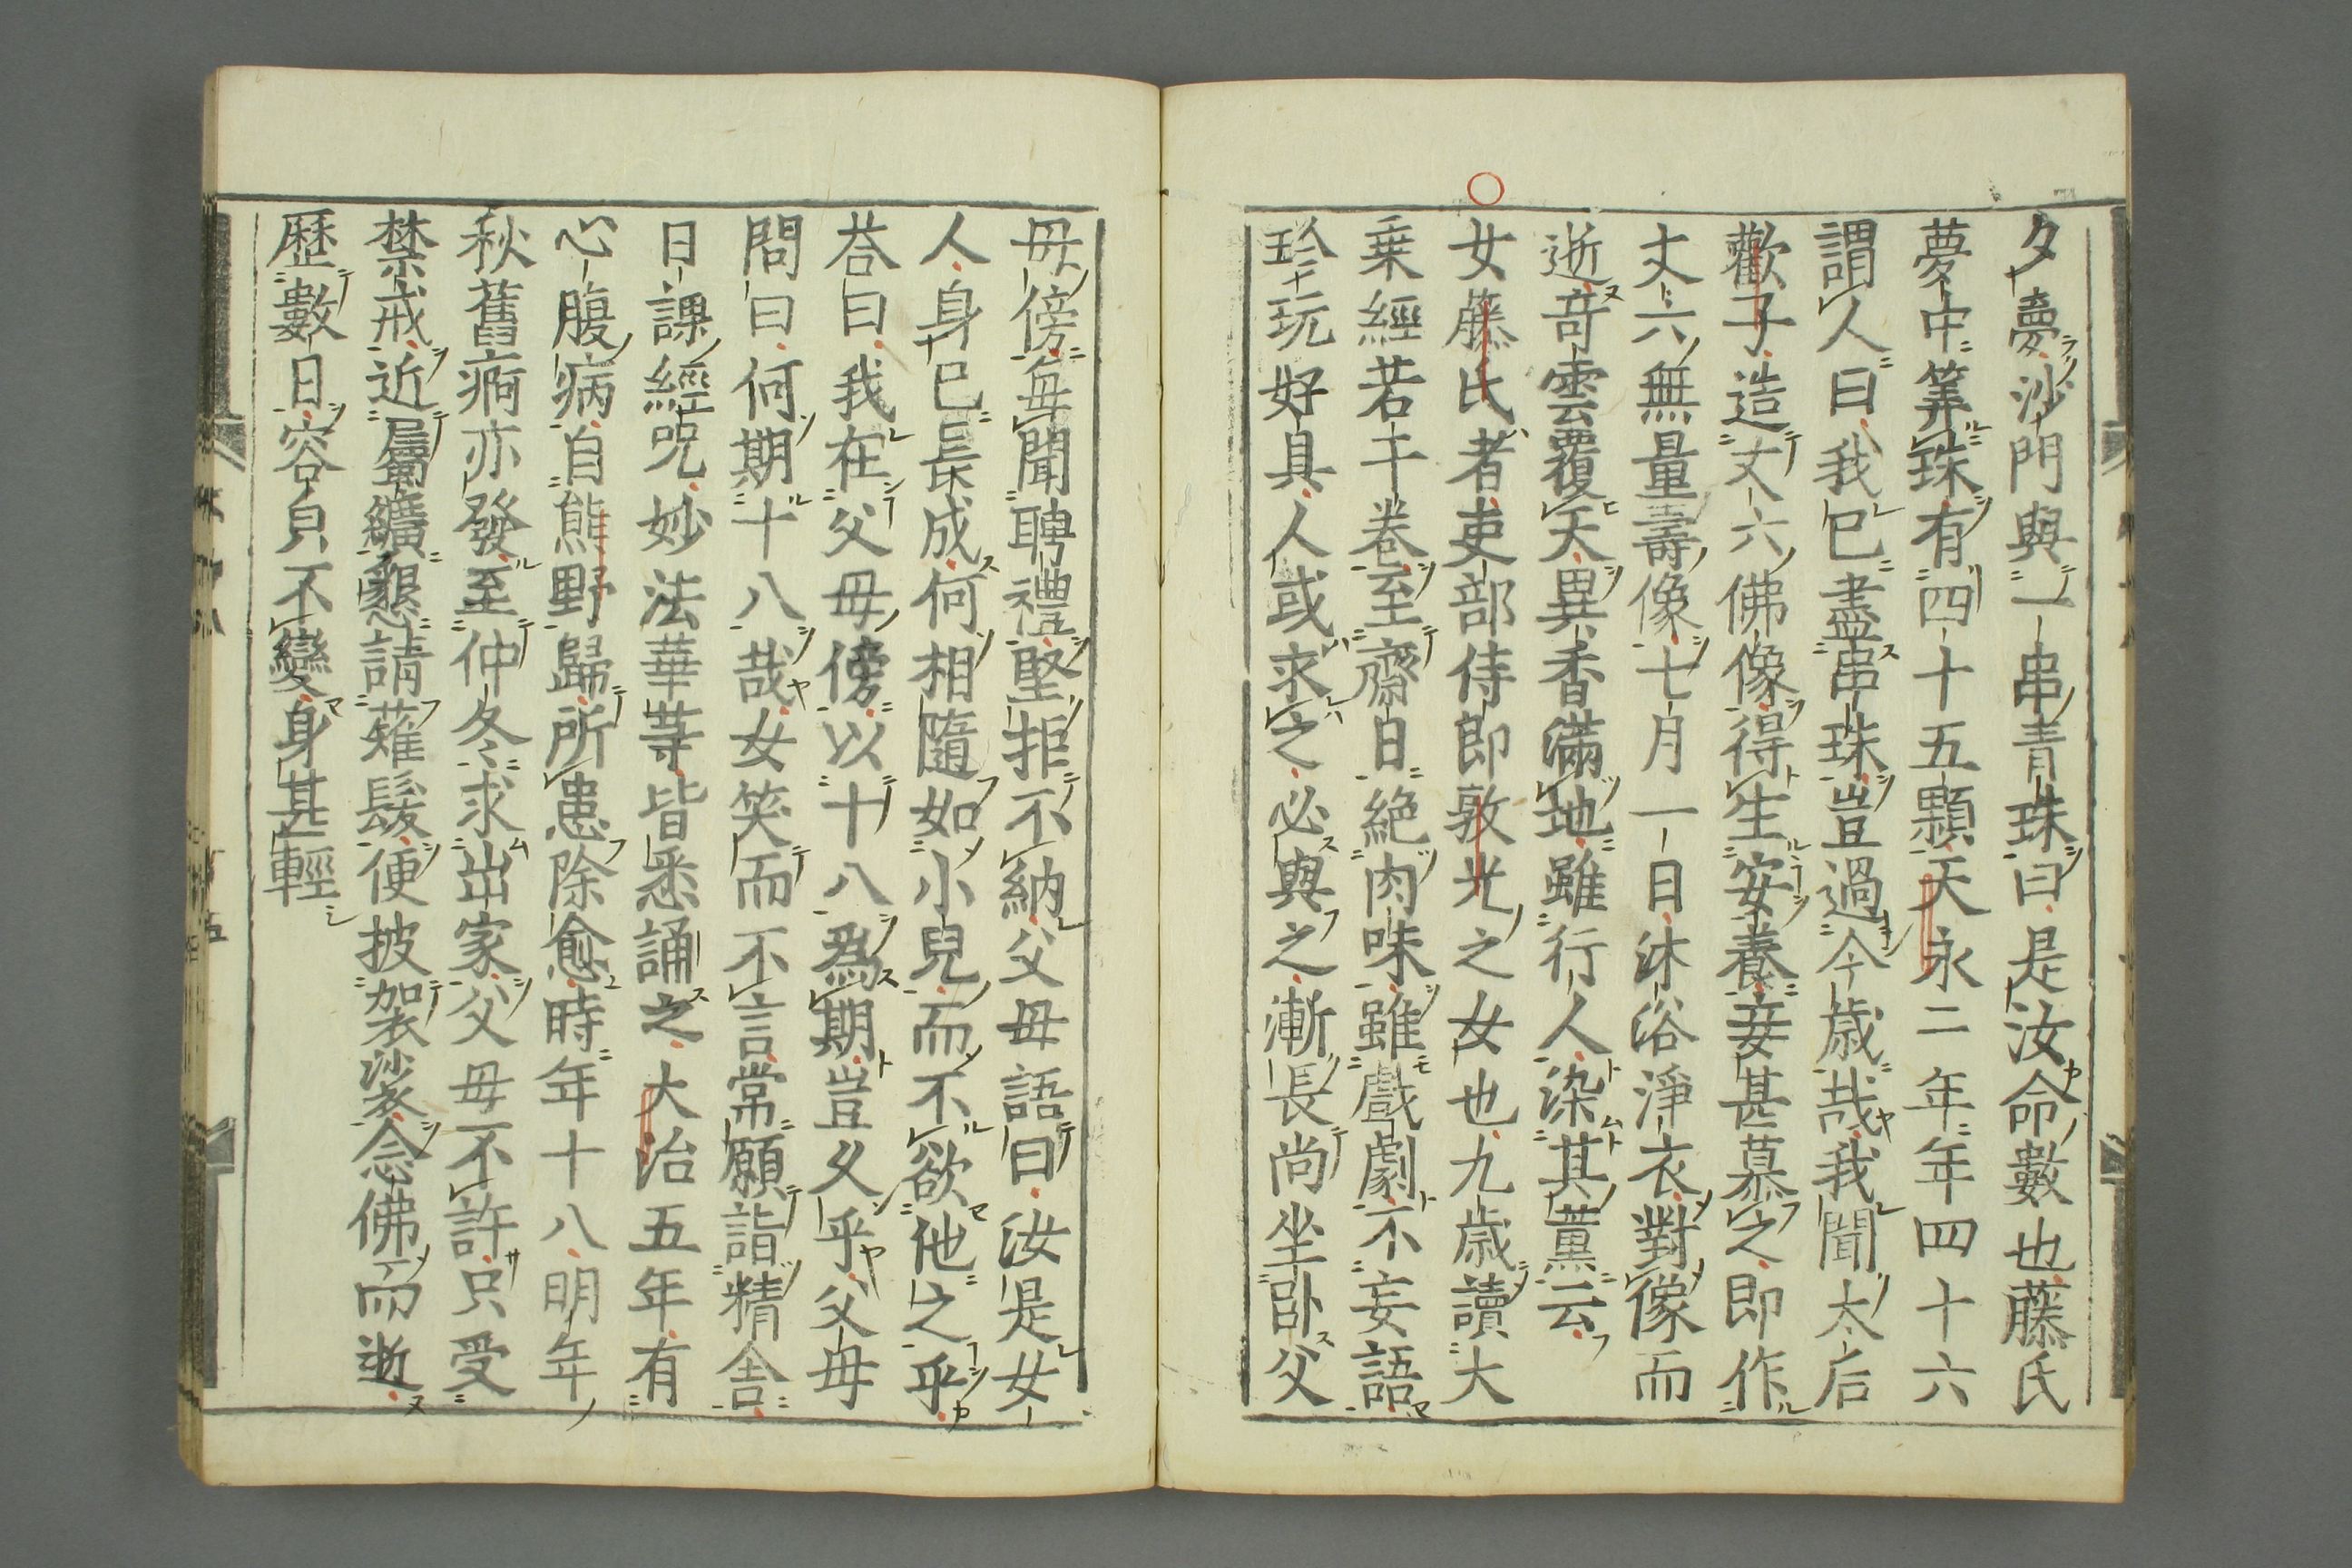 夕夢沙門與一串青珠曰是汝命數也藤氏
夢中筭珠有四十五顆天永二年年四十六
謂人曰我已盡串珠豈過今歳哉我聞太后
歡子造丈六佛像得生安養妾甚慕之即作
丈六無量壽像七月一日沐浴淨衣對像而
逝竒雲覆天異香滿地雖行人染其薫云
女藤氏者吏部侍郎敦光之女也九歳讀大
乗經若干卷至齋日絶肉味雖戲劇不妄語
珎玩好具人或求之必與之漸長尚坐卧父
毋傍毎聞聘禮堅拒不納父毋語曰汝是女
人身已長成何相隨如小兒而不欲他之乎
荅曰我在父毋傍以十八爲期豈乆乎父毋
問曰何期十八哉女笑而不言常願詣精舎
日課經呪妙法華等皆悉誦之大治五年有
心腹病自熊野歸所患除愈時年十八明年
秋舊痾亦發至仲冬求出家父毋不許只受
禁戒近屬纊懇請薙髮便披袈裟念佛而逝
歴數日容皃不變身甚輕